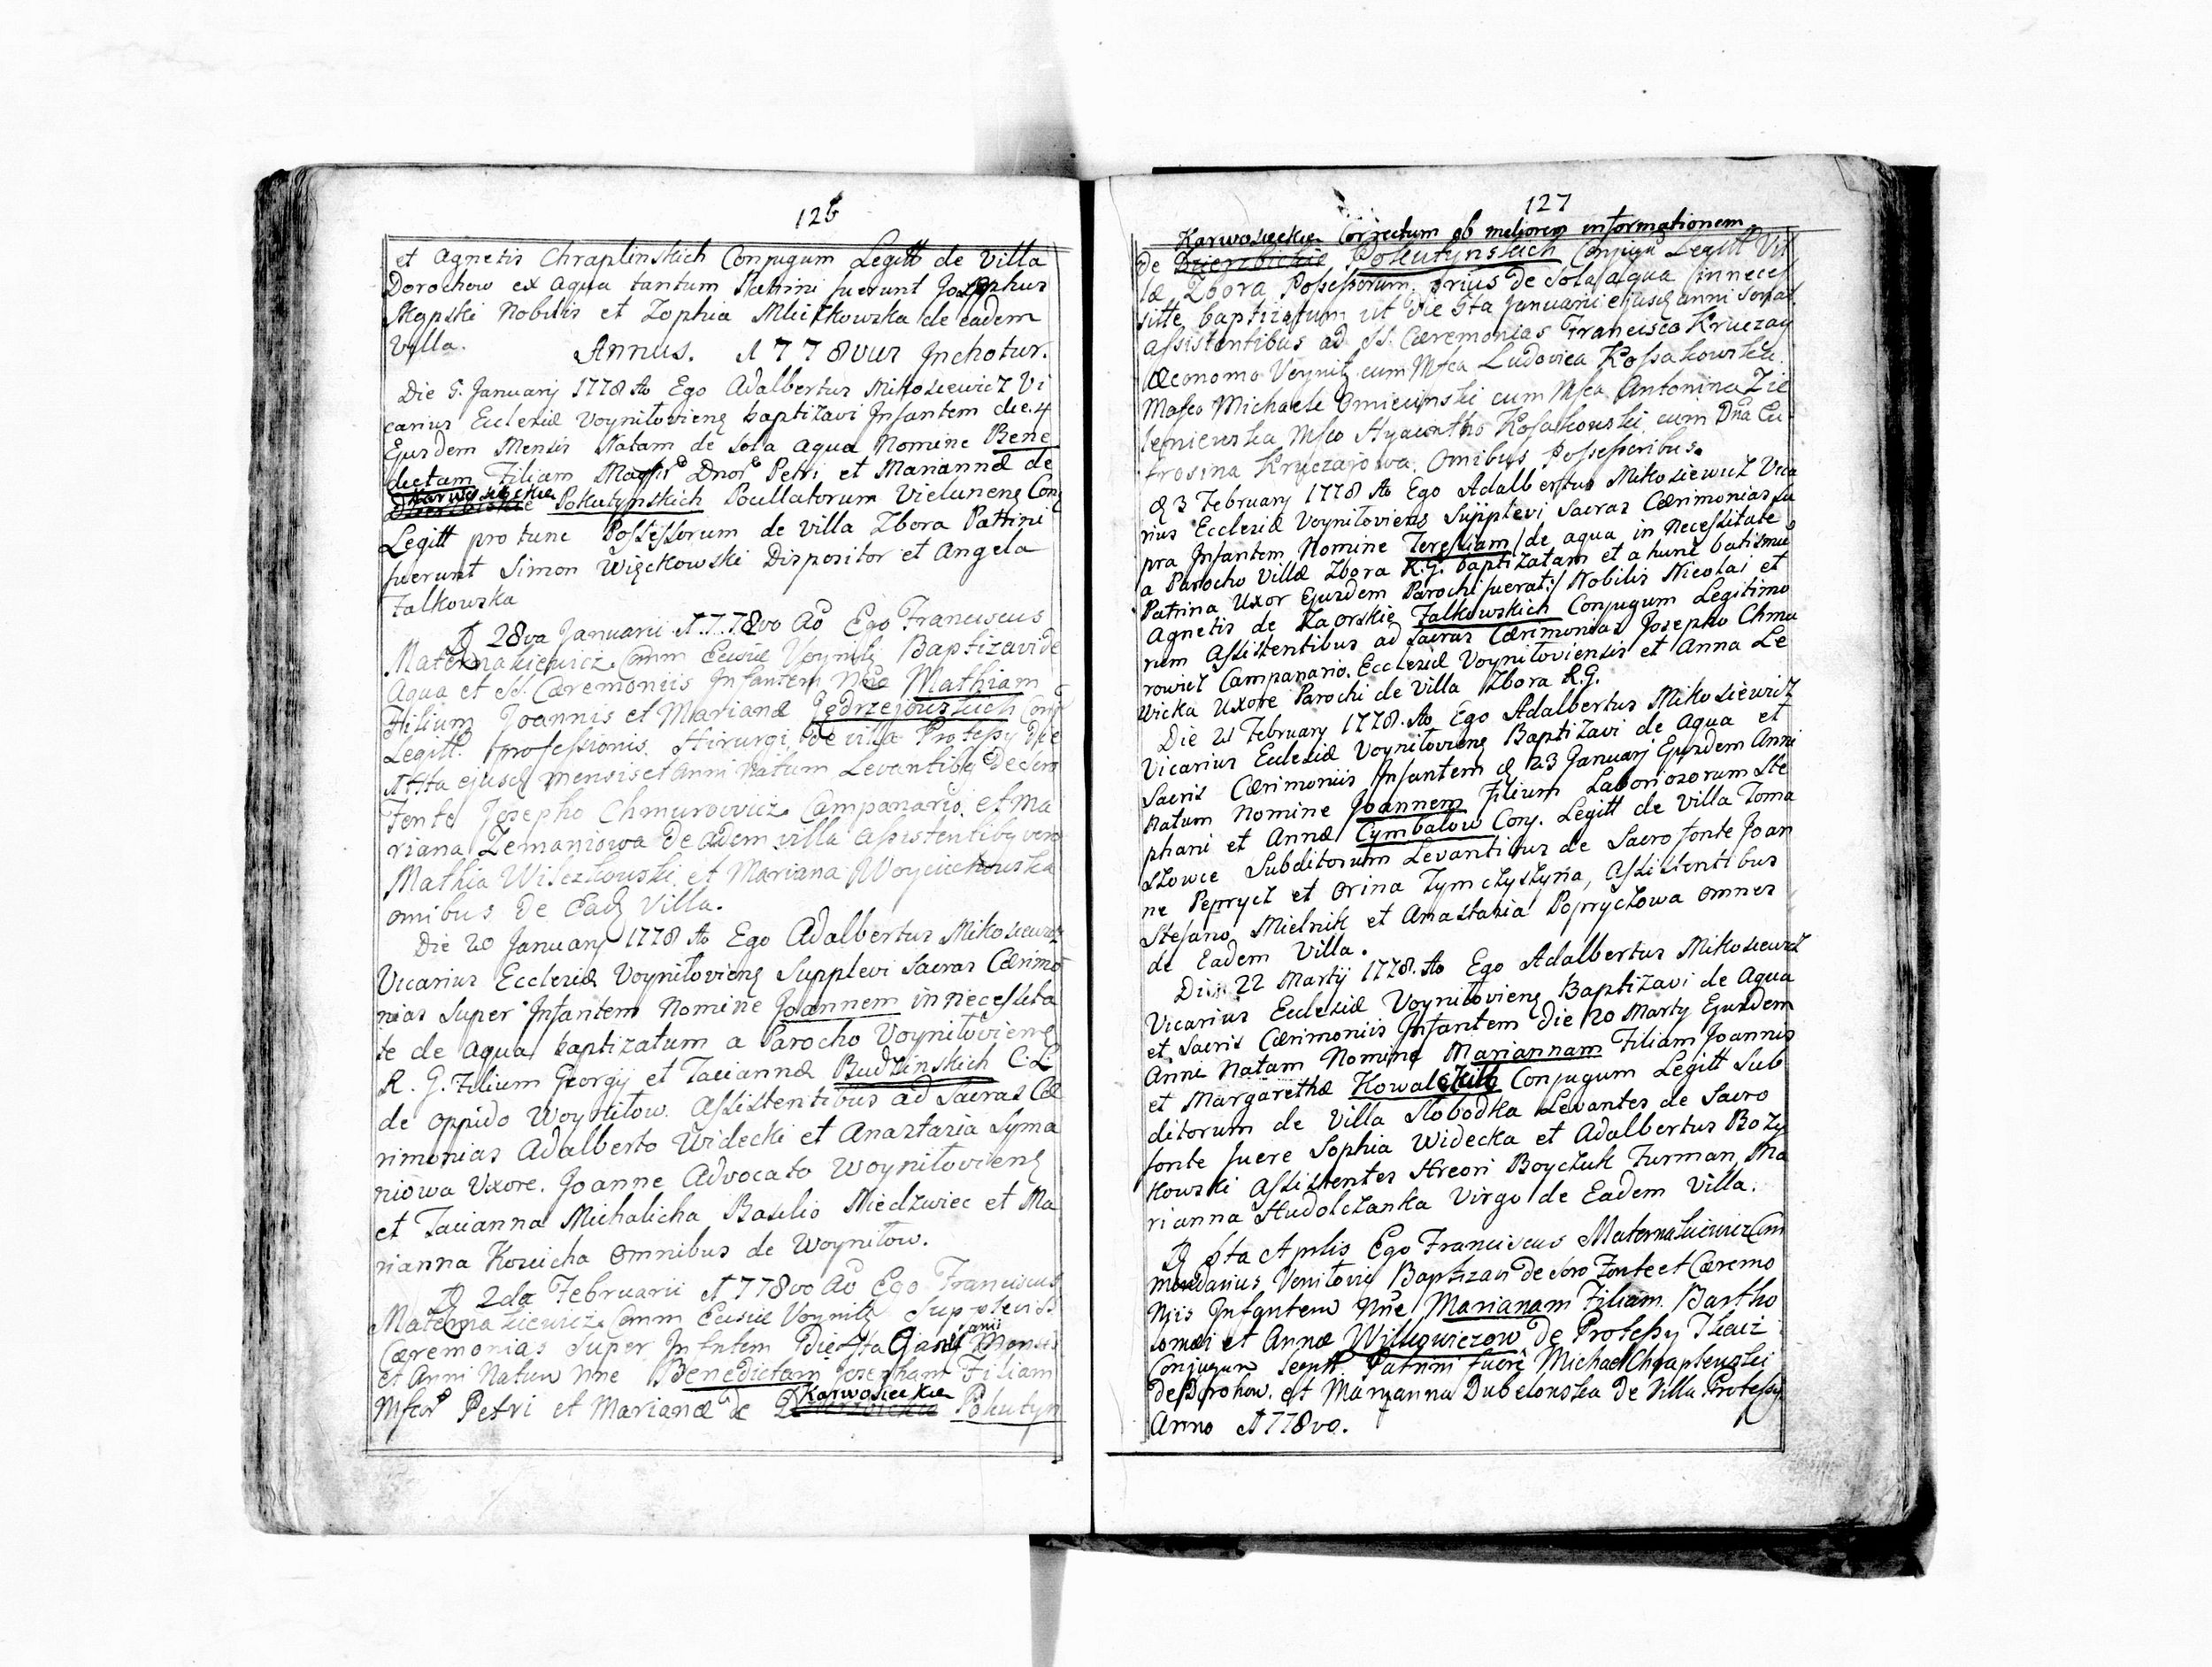 126
et Agnetis Chraplinskich Conjugum Legitt de Villa
Dorochow ex aqua tantum Patrini fuerunt Josephus
Nobilis et Zophia de eadem
Villa. Annus. 1778vus Inchotur.
Die 5. Januarij 1778 Ao Ego Adalbertus Mikosiewicz Vi
carius Ecclesiæ Voyniłovieng baptizavi Infantem die 4
Ejusdem Mensis Natam de sola aqua Nomine Bene
dictam Filiam Dnor Petri et Mariannæ de
Karwosieckie Pokutynskich Pocillatorum Vielunens Conj
Legitt pro tunc Possessorum de villa Zbora Patrini
fuerunt Simon Więckowski Dispositor et Angela
Falkowska
D 28va Januarii 1778vo Ao Ego Franciscus
Maternakiewicz Comm Eccsiæ Voynilz Baptizavi de
Aqua et SS. Cæremoniis Infantem Nne Mathiam
Filium Joannis et Marianæ Jędrzejowskich Conj
Legitt. professionis Hirurgi de villa Protessy die
ejusq mensis et Anni Natum Levantibq de Sacro
Fonte Josepho Chmurowicz Campanario et Ma
riana Zemaniowa de eadem villa assistentibq vero
Mathia Wilczkowski et Mariana Woyciechowska
omibus de Eadq Villa.
Die 20 January 1778 Ao Ego Adalbertus Mikosiewicz
Vicarius Ecclesiæ Voyniłovieng Supplevi Sacras Cærimo
nias Super Infantem Nomine Joannem in necessita
te de aqua baptizatum a Parocho Voyniłovieng
R. G. Filium Georgij et Taciannæ Budzinskich C. L.
de oppido Woyniłow. Assistentibus ad Sacras Cæ
rimonias Adalberto Widecki et Anastazia Syma
niowa Uxore. Joanne Advocato Woyniłovieng
et Tacianna Michalicha Basilio Niedzwiec et Ma
rianna Kozicha Omnibus de Woyniłow.
D 2da Februarii 1778vo Ao Ego Franciscus
Maternakiewicz Comm Eccsiæ Voynilz Suplevi SS
Cæremonias Super Infntem Die 5ta Mensis
et Anni Natum Nne Benedictam Josepham Filiam
Petri et Marianæ de Karwosieckie Pokutyn
127
Karwosieckie Correctum ob meliorem informationem
de Pokutynskich Conjugu Legitt Vil
læ Zbora Possessorum, prius de sola aqua in neces
sitte baptizatum ut die 5ta Januarii ejusq anni
assistentibus ad SS. Cæremonias Francisco Kruczay
Œconomo Voynilz cum Ludovica Kossakowska.
Michaele Omiecinski cum Antonina Zie
leniewska Hyacintho Kosakowski cum Dna Eu
frosina Kruczajowa. Omibus Possessoribus.
D 3 February 1778 Ao Ego Adalbertus Mikosiewicz Vica
rius Ecclesiæ Voyniłoviens Supplevi Sacras Cærimonias su
pra Infantem Nomine Teressiam /de aqua in Necessitate
a Parocho Villæ Zbora R.G. baptizatam et a hunc batismus
Patrina Uxor Ejusdem Parochi fuerat:/ Nobilis Nicolai et
Agnetis de Zaorskie Falkowskich Conjugum Legitimo
rum Assistentibus ad Sacras Cærimonias Josepho Chmu
rowicz Campanario. Ecclesiæ Voyniłoviensis et Anna Le
wicka Uxore Parochi de Villa Zbora R.G.
Die 21 February 1778. Ao Ego Adalbertus Mikosiewicz
Vicarius Ecclesiæ Voyniłovieng Baptizavi de Aqua et
Sacris Cærimoniis Infantem D 23 Januarj Ejusdem Anni
Natum Nomine Joannem Filium Laboriosorum Ste
phani et Annæ Cymbałow Conj. Legitt de Villa Toma
szowce Subditorum Levantibus de Sacro fonte Joan
ne Pepryct et Orina Tymczyszyna, Assistentibus
Stefano Mielnik et Anastasia Poprychowa omnes
de Eadem Villa.
Die 22 Martij 1778. Ao Ego Adalbertus Mikosiewicz
Vicarius Ecclesiæ Voyniłovieng Baptizavi de Aqua
et Sacris Cærimoniis Infantem Die 20 Marty Ejusdem
Anni Natam Nomine Mariannam Filiam Joannis
et Margarethæ Kowalskich Conjugum Legitt Sub
ditorum de Villa Słobodka Levantes de Sacro
fonte fuere Sophia Widecka et Adalbertus Bozy
kowski Assistentes Hreori Boyczuk Furman, Ma
rianna Hudolczanka Virgo de Eadem Villa.
D 5ta Aprilis Ego Franciscus Maternakiewicz Com
mendarius Voniłovig Baptizavi de Sacro Fonte et Cæremo
Njis Infgntem Nne Marianam Filiam Bartho
lomæi et Annæ Witkowiczow de Protessy Tkacz
Conjugum Legitt Patrini fuere Michael Chraplewski
de Dorohow. et Marianna Dubelowska de Villa Protessy
Anno 1778vo.